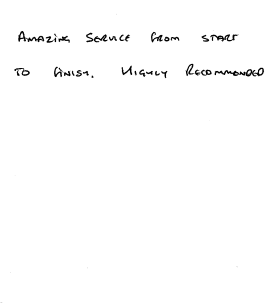 AMAZING SERVICE FROM START
TO FINISH. HIGHLY RECOMMENDED